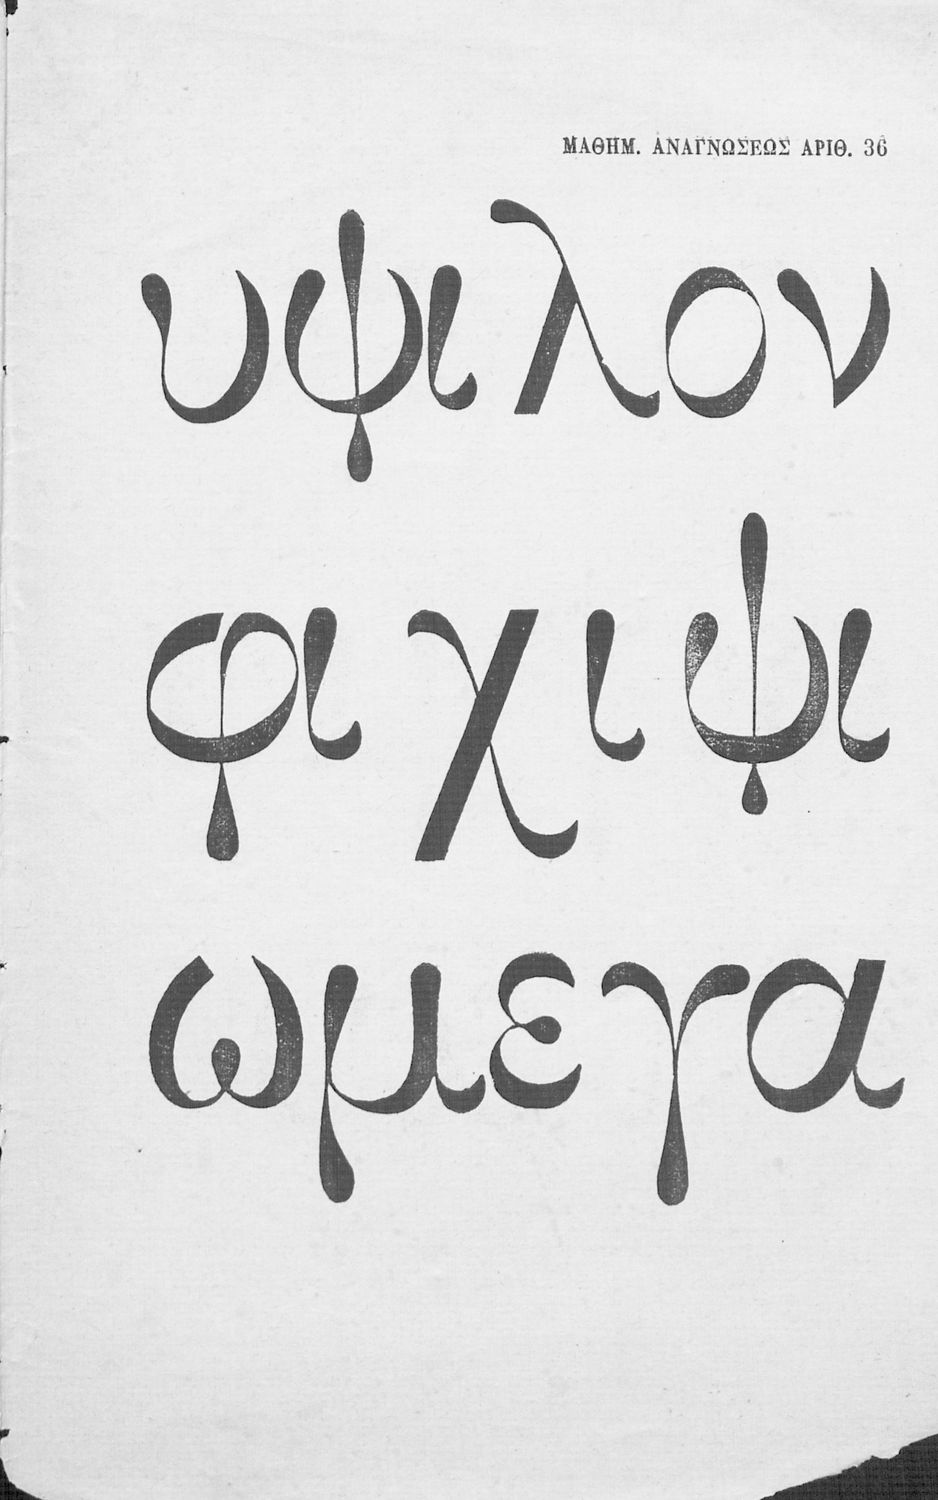 ΜΑΘΗΜ. ΑΝΑΓΝΩΣΕΩΣ ΑΡΙΘ. 36
υψιλον
φι χι ψι
ωμεγα